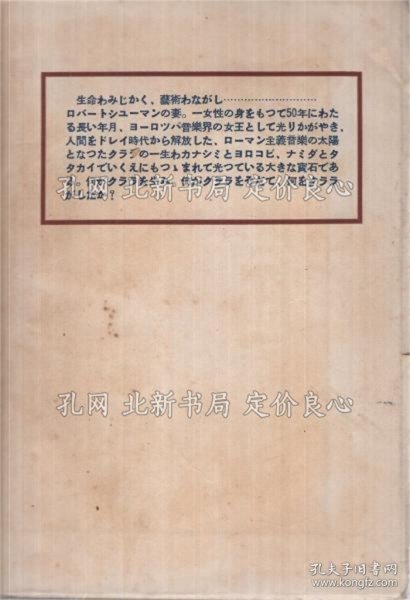 生命わみじかく、藝術わながし…………………………
ロバートシューマンの妻。一女性の身をもつて50年にわた
る長い年月、ヨーロツパ音樂界の女王として光りかがやき、
人間をドレイ時代から解放した、ローマン主義音樂の太陽
となつたクララの一生わカナシミとヨロコビ、ナミダとタ
タカイでいくえにもつゝまれて光つている大きな寶石であ
クララを
クララ
がしたか?
孔网 北新书局 定价良心
孔网 北新书局 定价良心
孔夫子旧书网
www.kongfz.com